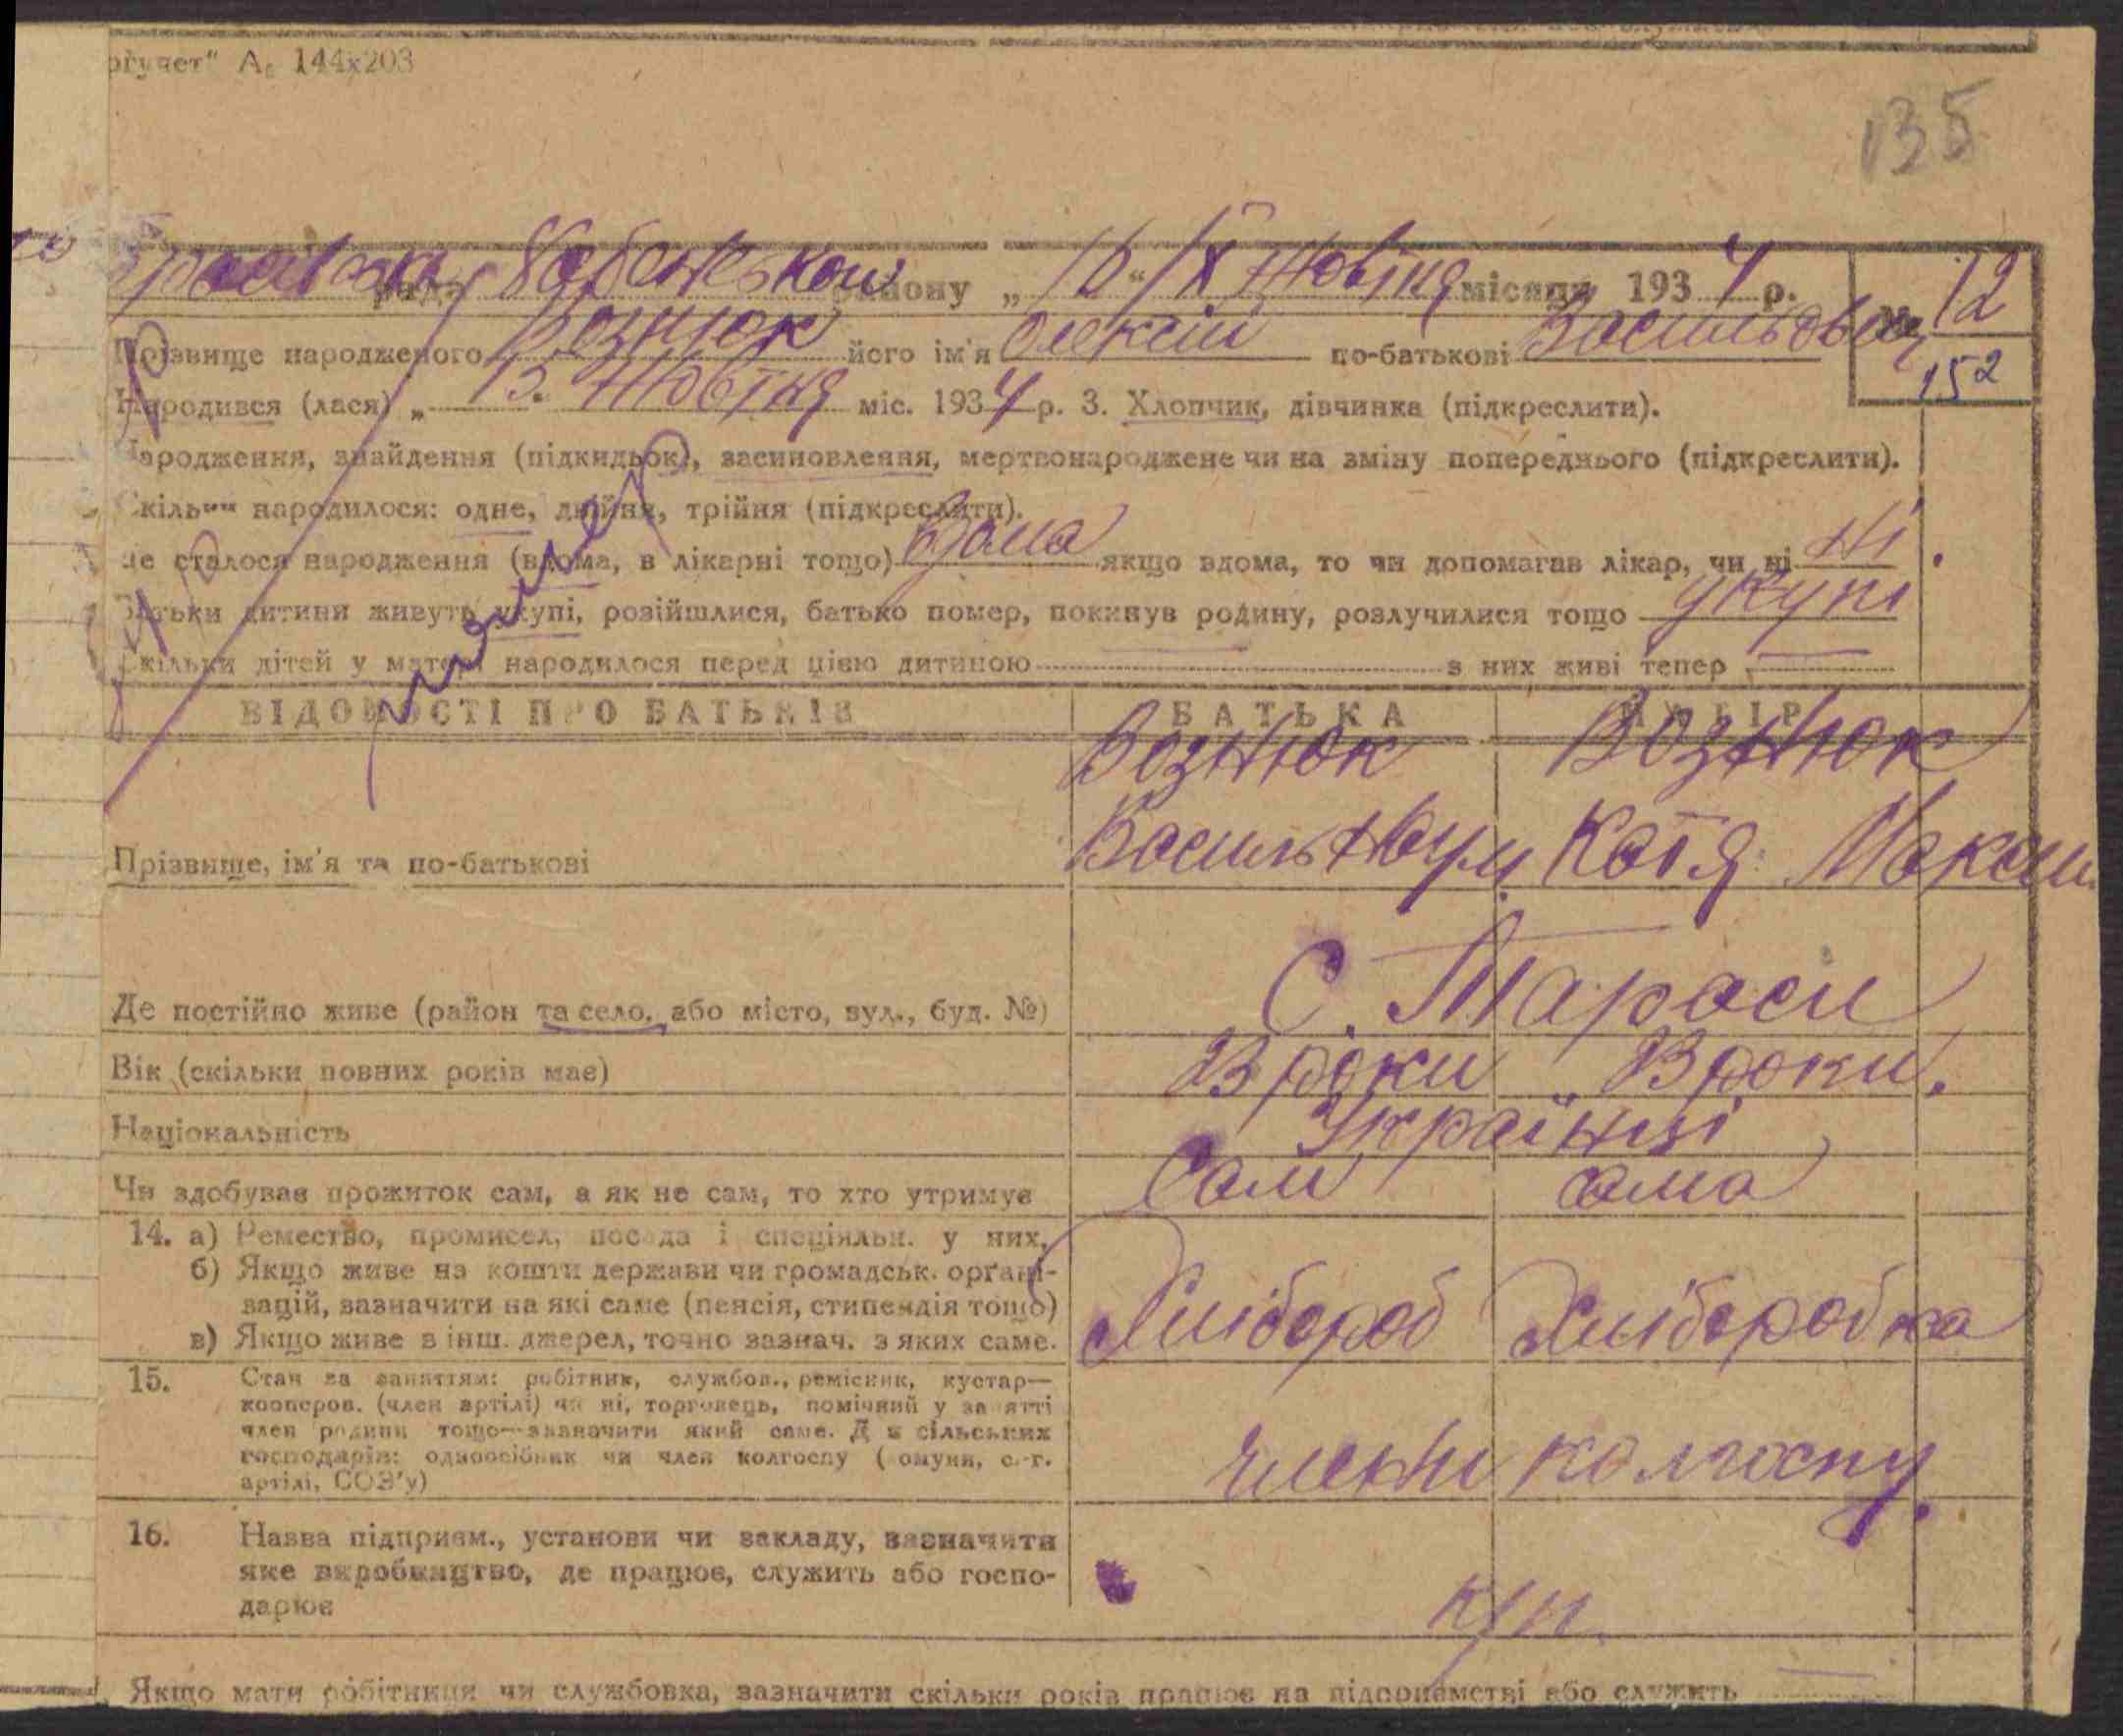 ргучет" А₆ 144х203
135
рада Бабанського району „16" ІХ жовтня місяця 1934 р. № 12
Прізвище народженого Вознюк його ім'я Олексій по-батькові Васильович
152
Народився (лася) „ 15. жовтня міс. 1934 р. 3. Хлопчик, дівчинка (підкреслити).
Народження, знайдення (підкидьок), засиновлення, мертвонароджене чи на зміну попереднього (підкреслити).
Скільки народилося: одне, двійня, трійня (підкреслити).
Де сталося народження (вдома, в лікарні тощо) Вдома якщо вдома, то чи допомагав лікар, чи ні Ні
Батьки дитини живуть укупі, розійшлися, батько помер, покинув родину, розлучилися тощо укупі
Скільки дітей у матері народилося перед цією дитиною — з них живі тепер —
помер
ВІДОМОСТІ ПРО БАТЬКІВ БАТЬКА МАТІР
Вознюк Вознюк
Прізвище, ім'я та по-батькові Василь Наум. Катя Максим.
Де постійно живе (район та село, або місто, вул., буд. №) С. Тараси
Вік (скільки повних років має) 23 роки 23 роки.
Національність Українці
Чи здобуває прожиток сам, а як не сам, то хто утримує Сам сама
14. а) Ремество, промисел, посада і спеціяльн. у них,
б) Якщо живе на кошти держави чи громадськ. орґані-
зацій, зазначити на які саме (пенсія, стипендія тощо)
в) Якщо живе в інш. джерел, точно зазнач. з яких саме.
Хлібороб Хліборобка
15. Стан за заняттям: робітник, службов., ремісник, кустар—
кооперов. (член артілі) чи ні, торговець, помічний у занятті
член родини тощо—зазначити який саме. Для сільських
господарів: одноосібник чи член колгоспу (комуни, с.-г.
артілі, СОЗ'у)
члени колгоспу.
16. Назва підприєм., установи чи закладу, зазначити
яке виробництво, де працює, служить або госпо-
дарює
к/г.
Якщо мати робітниця чи службовка, зазначити скільки років працює на підприємстві або служить —